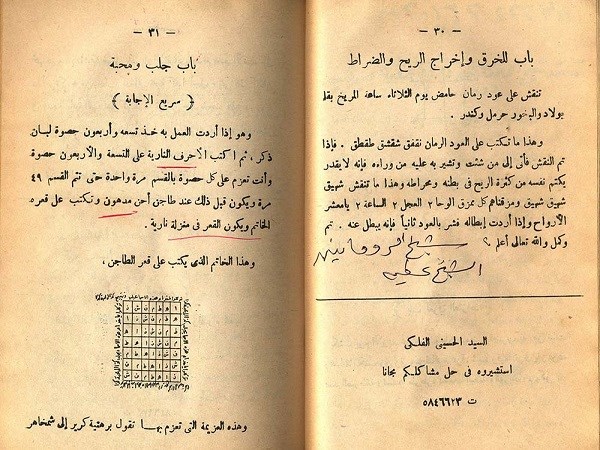 — ٣٠ —
باب للخرق وإخراج الريح والضراط
تنقش على عود رمان حامض يوم الثلاثاء ساعة المريخ بقلم
بولاد والبخور حرمل وكندر .
وهذا ما تكتب على العود الرمان نقفق شقشق طقطق . فإذا
تم النقش فأتى إلى من شئت وتشير به عليه من وراءه فإنه لايقدر
يكتم نفسه من كثرة الريح فى بطنه ومخراطه وهذا ما تنقش شهيق
شهيق شهيق ومزقناهم كل ممزق الوحا ٢ العجل ٢ الساعة ٢ يامعشر
الأرواح وإذا أردت إبطاله فشر بالعود ثانياً فإنه يبطل عنه . تم
وكمل والله تعالى أعلم
الشيخ عطيه
السيد الحسينى الفلكى
استشيروه فى حل مشاكلكم مجانا
ت ٥٨٤٦٦٢٣
— ٣١ —
باب جلب ومحبة
﴿ سريع الإجابة ﴾
وهو إذا أردت العمل به خذ تسعه وأربعون حصوة لبان
ذكر . ثم اكتب الأحرف النارية على التسعة والأربعون حصوة
وأنت تعزم على كل حصوة بالقسم مرة واحدة حتى تتم القسم ٤٩
مرة ويكون قبل ذلك عند طاجن أحن مدهون وتكتب على قعره
الخاتم ويكون القمر فى منزلة نارية .
وهذا الخاتم الذى يكتب على قعر الطاجن .
وهذه العزيمة التى تعزم بهـا تقول برهتية كرير إلى شمخاهر